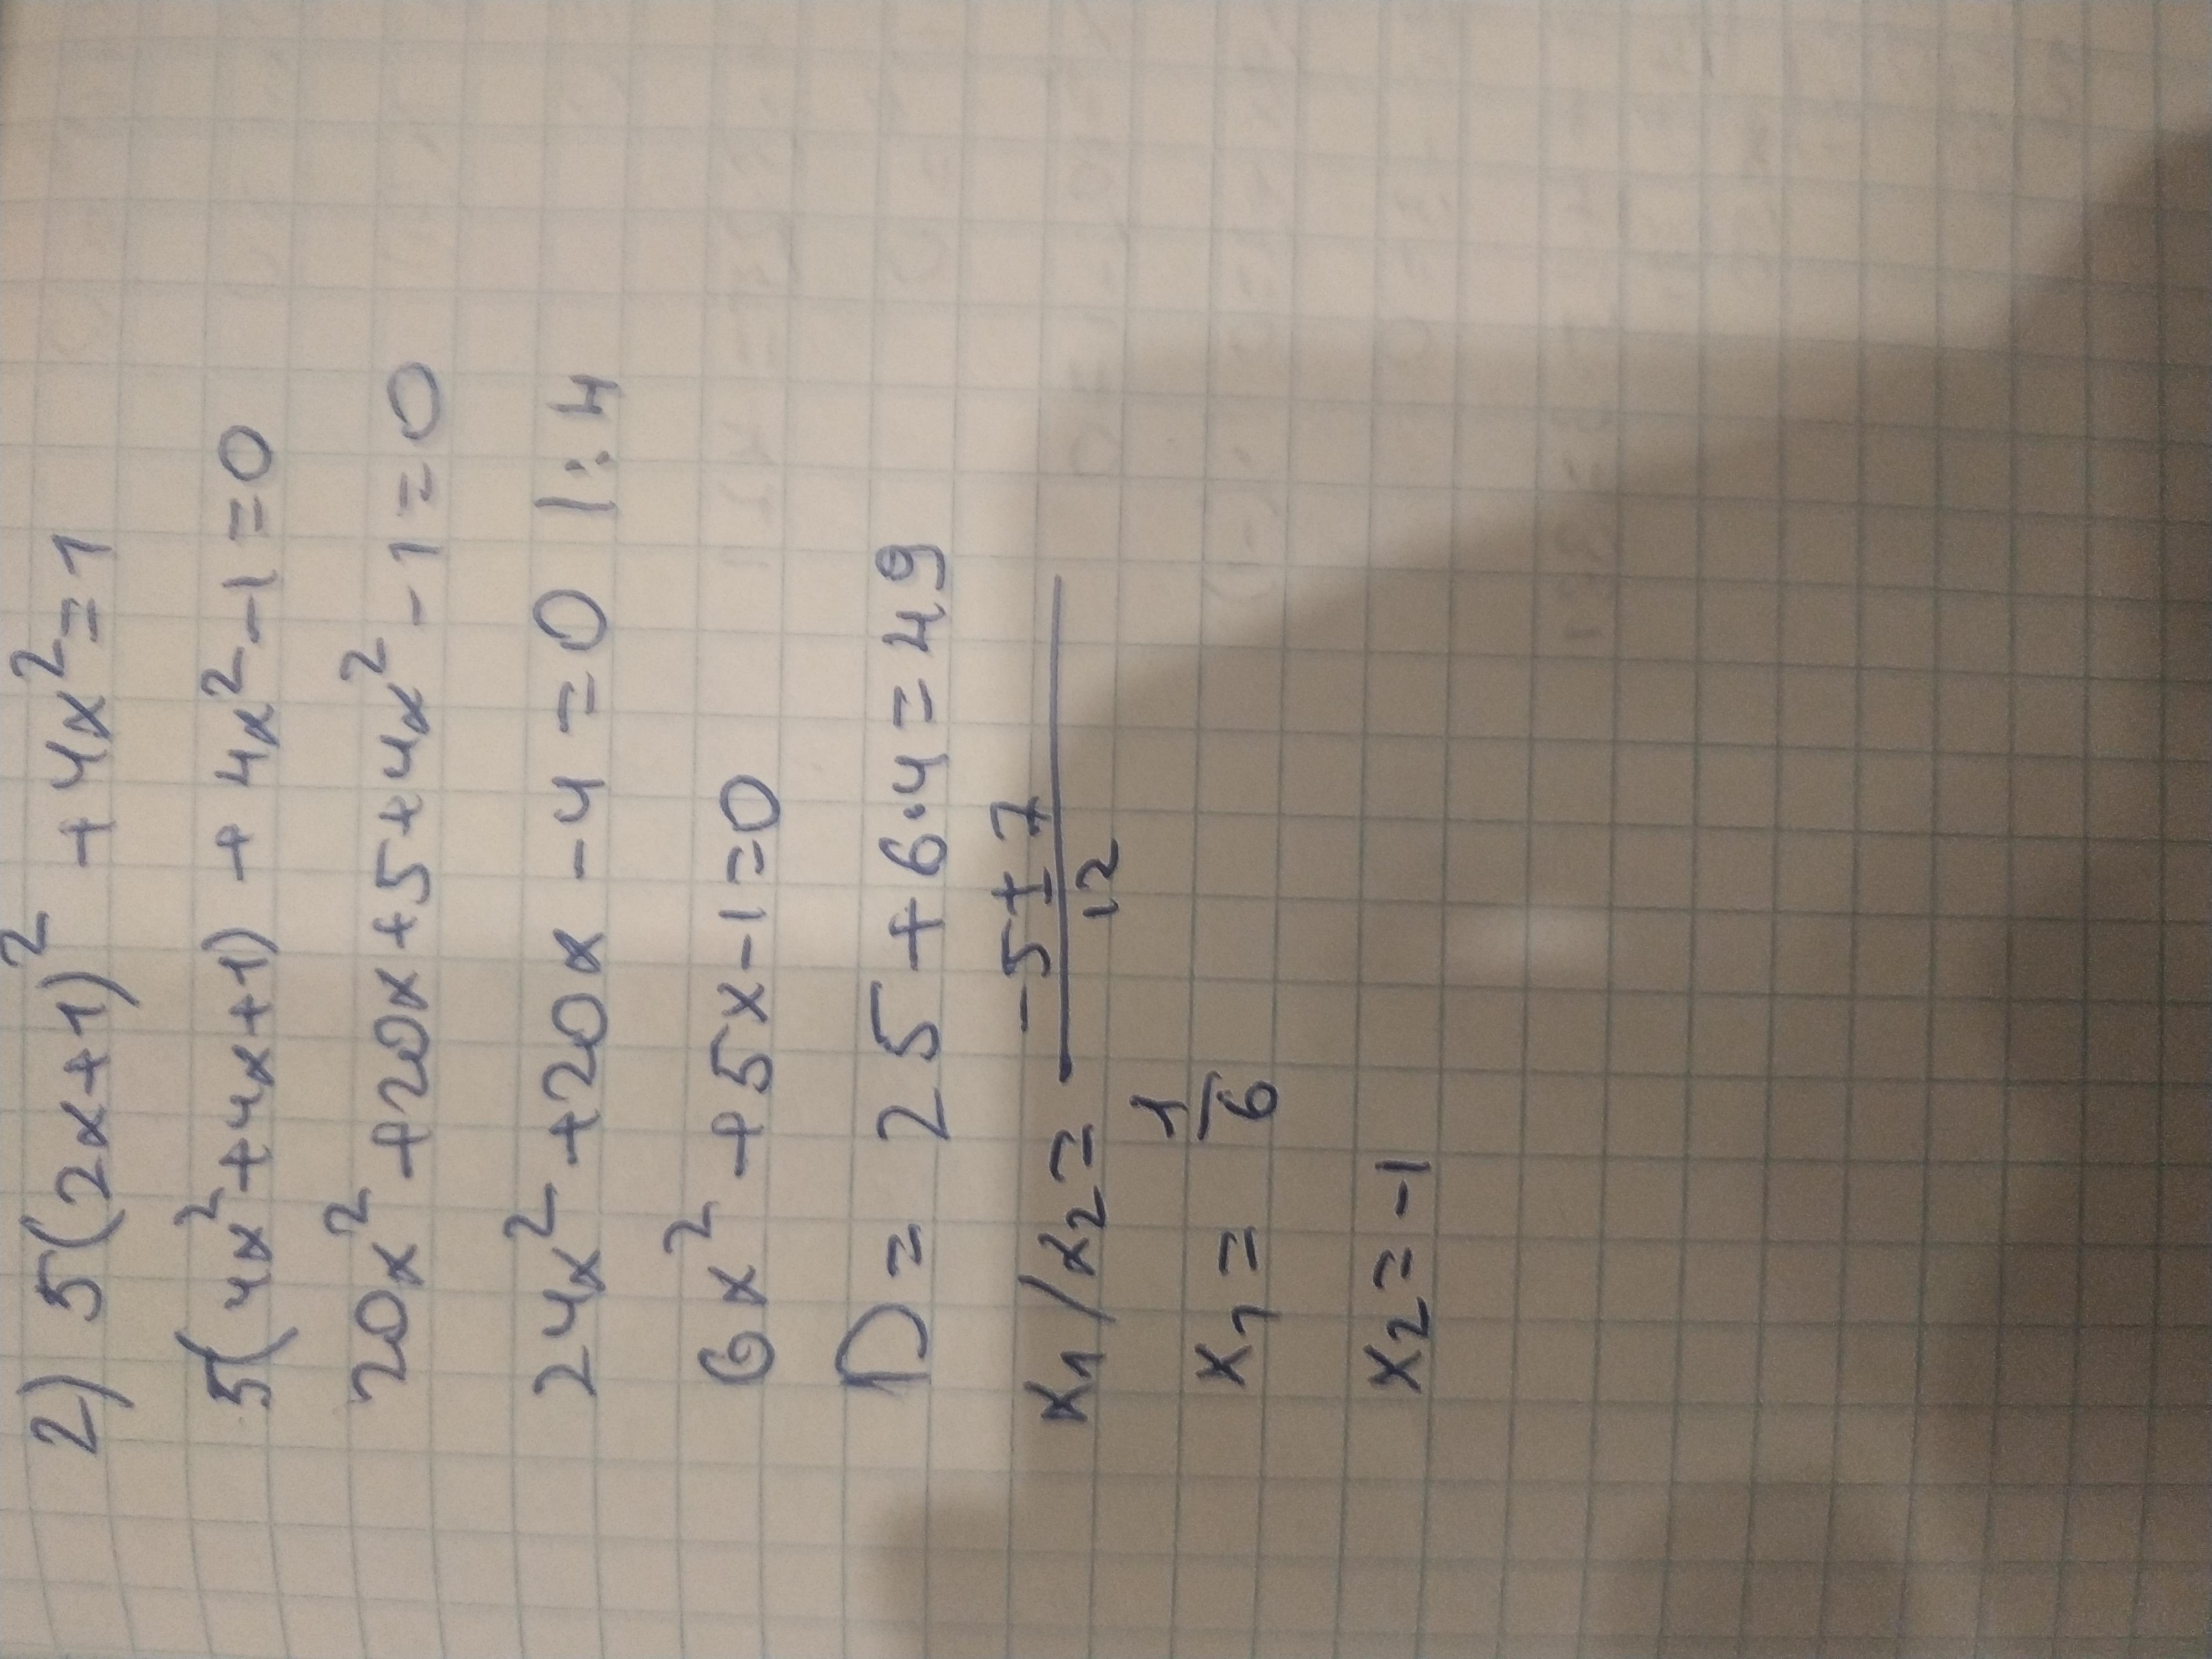 2) 5(2x+1)² + 4x² = 1
5(4x²+4x+1) + 4x²-1=0
20x²+20x+5+4x²-1=0
24x²+20x-4=0 |:4
6x²+5x-1=0
D= 25+6·4=49
x₁/x₂= (-5±7)/12
x₁= 1/6
x₂=-1